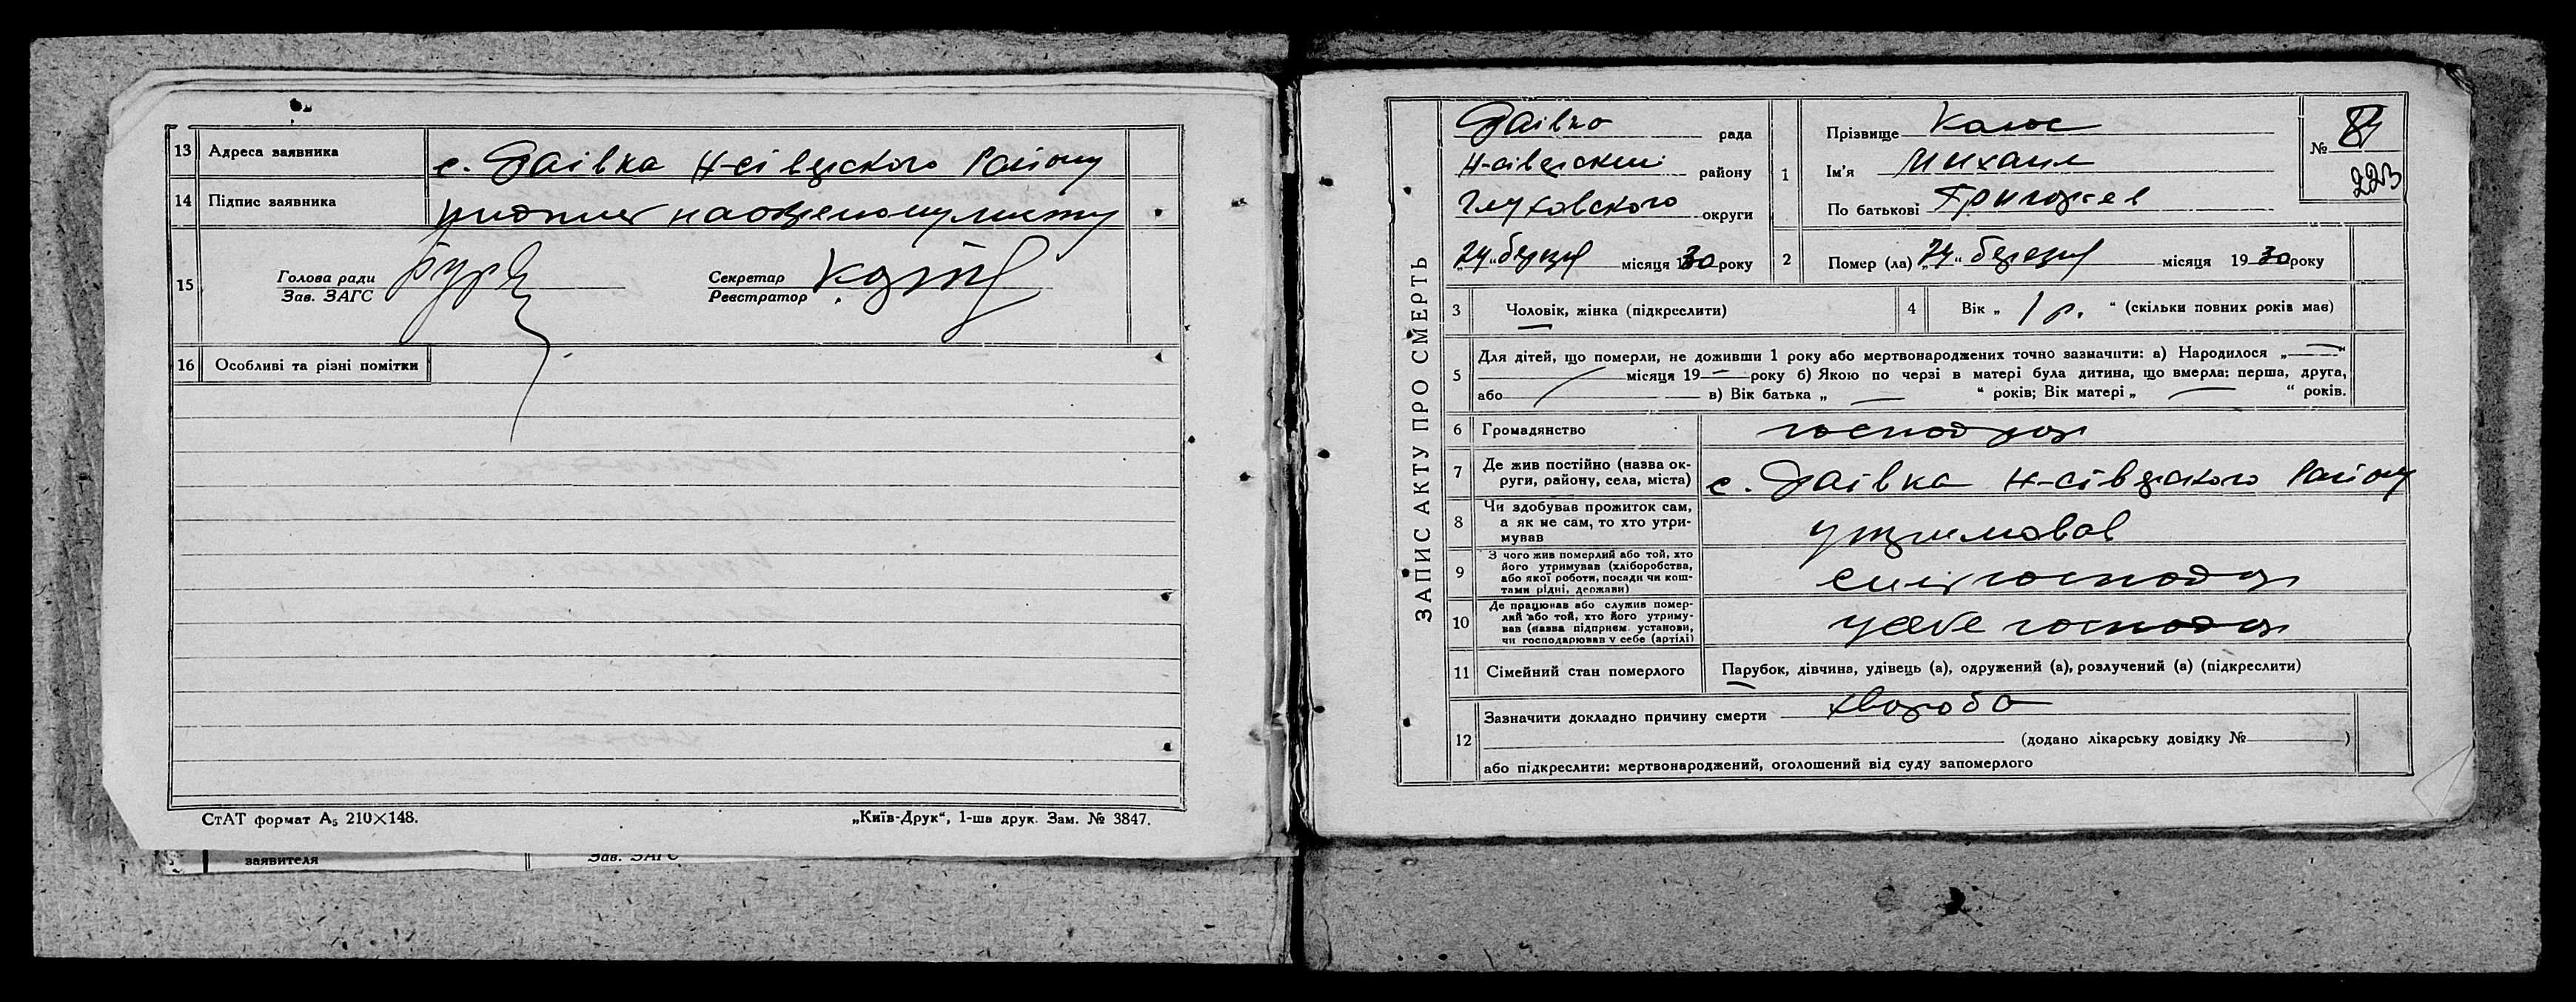 13 Адреса заявника с. Раївка Н-сіверского Району
14 Підпис заявника
15 Голова ради Секретар
Зав. ЗАГС Реєстратор
16 Особливі та різні помітки
СтАТ формат А₅ 210×148. „Київ-Друк“, 1-ша друк. Зам. № 3847.
заявителя Зав. ЗАГС
ЗАПИС АКТУ ПРО СМЕРТЬ
рада
Н-сіверский району
Глуховского округи
„24„ березня місяця 1930 року
1 Прізвище
Ім'я Михаил
По батькові Григорьев
№ 81
223
2 Помер (ла) „24“ березня місяця 1930 року
3 Чоловік, жінка (підкреслити)
4 Вік „ 1 р. “ (скільки повних років має)
5 Для дітей, що померли, не доживши 1 року або мертвонароджених точно зазначити: а) Народилося „—“
місяця 19 — року б) Якою по черзі в матері була дитина, що вмерла: перша, друга,
або в) Вік батька „ — “ років; Вік матері „ — “ років.
6 Громадянство господар
7 Де жив постійно (назва ок-
руги, району, села, міста) с. Раївка Н-сіверского Району
8 Чи здобував прожиток сам,
а як не сам, то хто утри-
мував утримовав
9 З чого жив померлий або той, хто
його утримував (хліборобства,
або якої роботи, посади чи кош-
тами рідні, держави) господар
10 Де працював або служив помер-
лий або той, хто його утриму-
вав (назва підприєм. установи,
чи господарював у себе (артілі) усебе господар
11 Сімейний стан померлого Парубок, дівчина, удівець (а), одружений (а), розлучений (а) (підкреслити)
12 Зазначити докладно причину смерти хвороба
(додано лікарську довідку № )
або підкреслити: мертвонароджений, оголошений від суду запомерлого